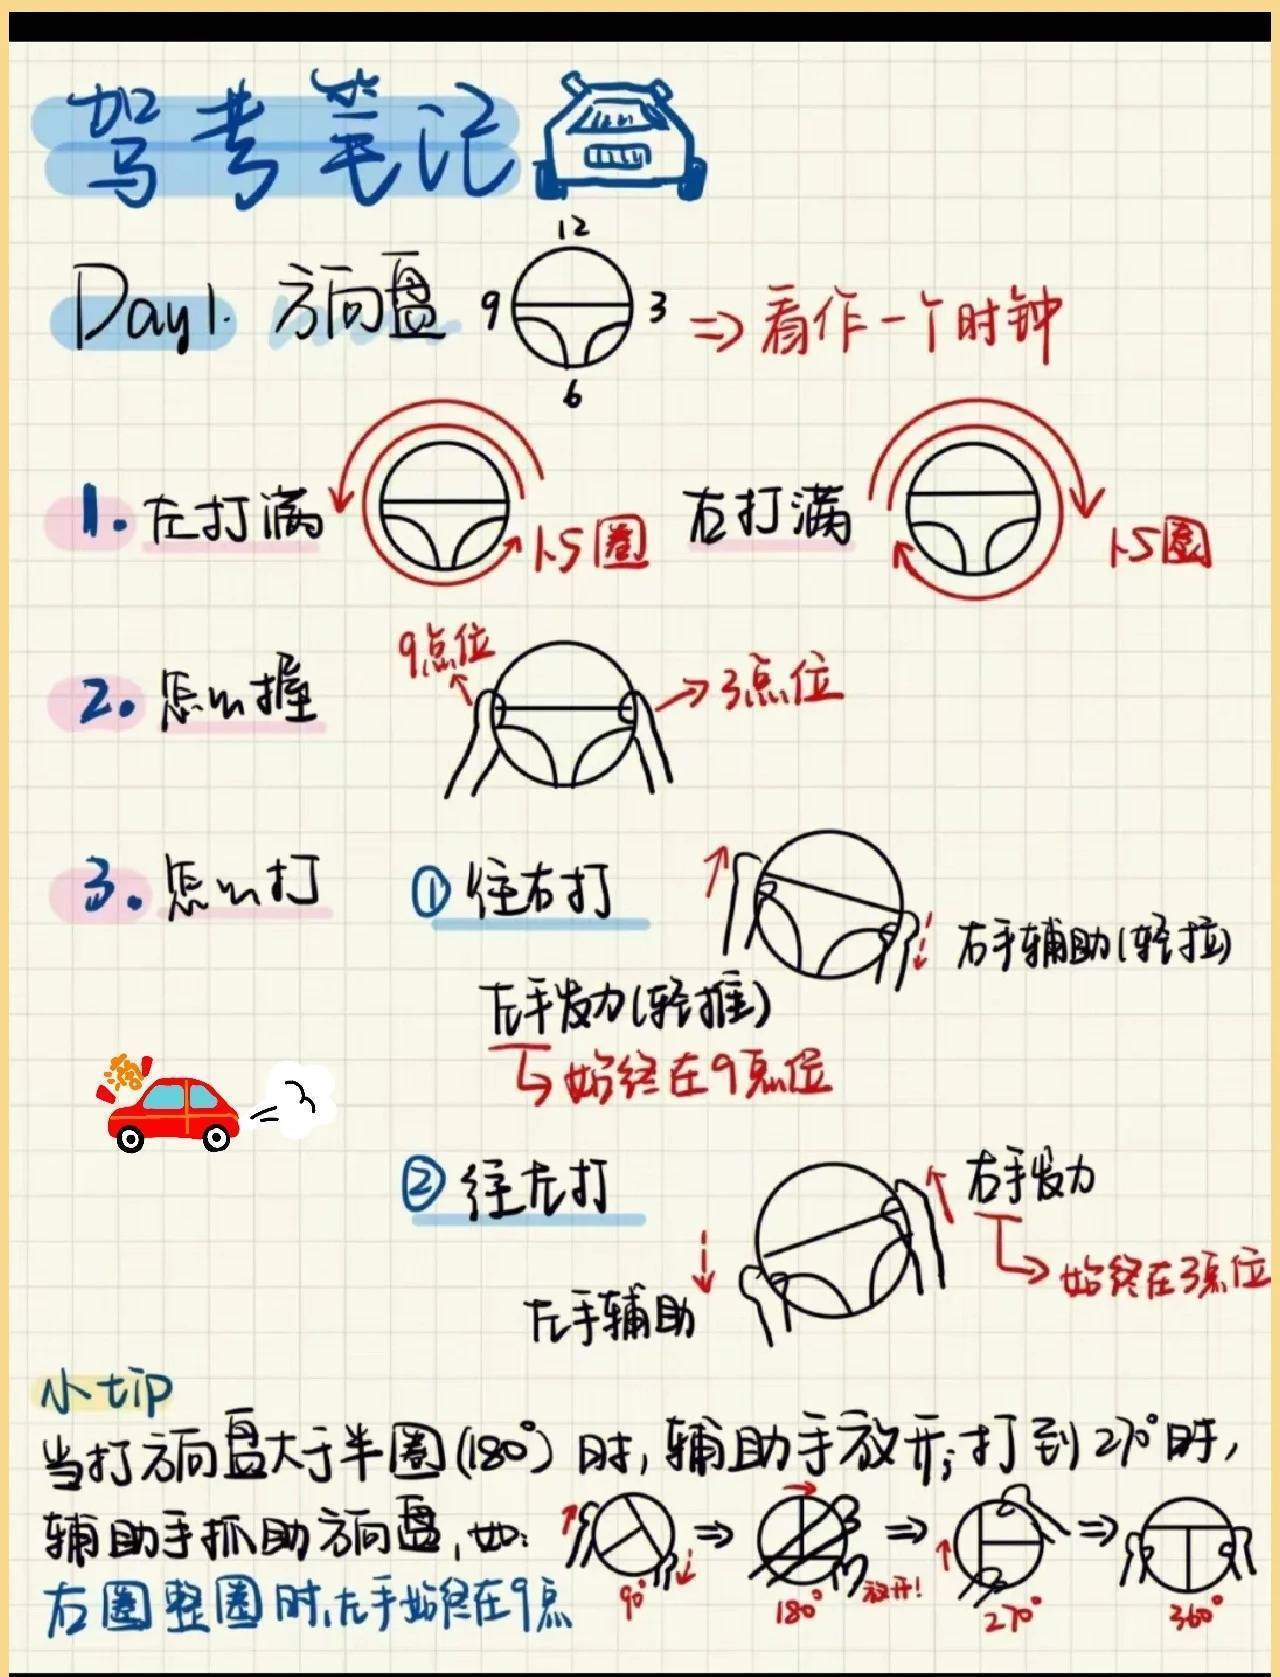 驾考笔记
Day1. 方向盘 12 9 3 6 => 看作一个时钟
1. 左打满 1.5圈 右打满 1.5圈
2. 怎么握 9点位 3点位
3. 怎么打 ① 往右打
右手辅助(轻拉)
左手发力(轻推)
始终在9点位
② 往左打 右手发力
始终在3点位
左手辅助
小tip
当打方向盘大于半圈(180°)时,辅助手放开;打到270°时,
辅助手抓助方向盘,如:
右圈整圈时,左手始终在9点
90° 180° 放开! 270° 360°